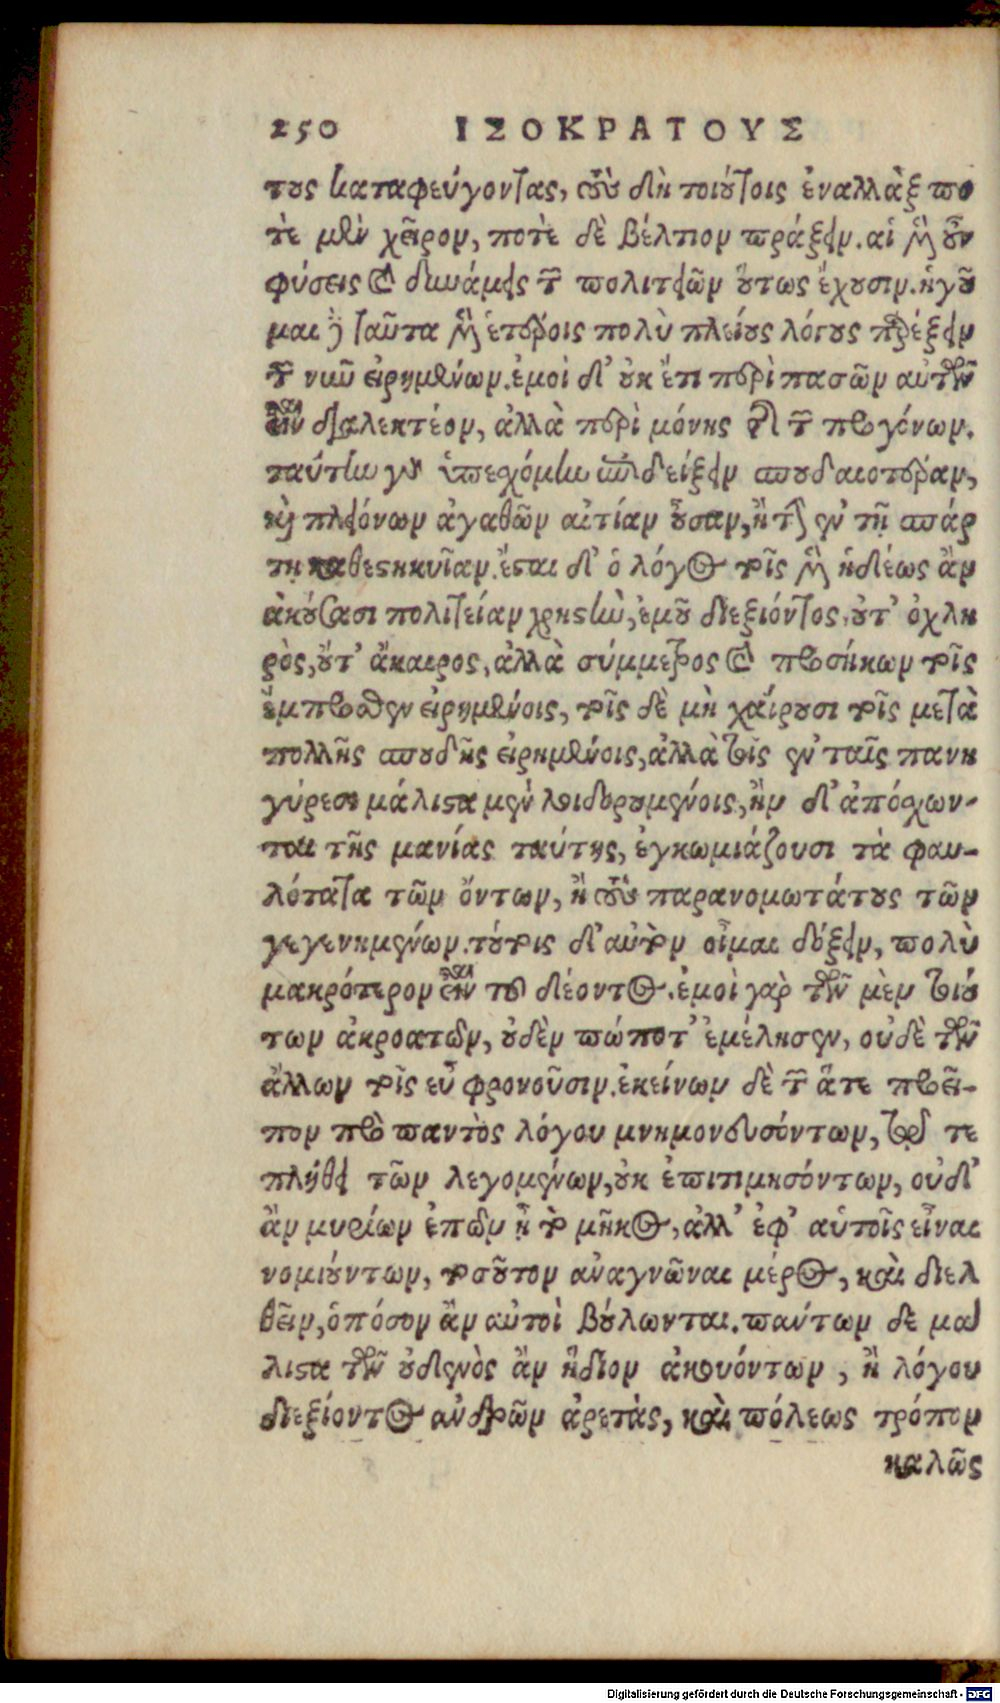 250 ΙΣΟΚΡΑΤΟΥΣ
τους καταφεύγοντας, τοὺς δὴ τοιούτοις ἐναλλὰξ πο
τὲ μὲν χεῖρον, ποτὲ δὲ βέλτιον πράξειν. αἱ μὲν οὖν
φύσεις καὶ δυνάμεις τῶν πολιτειῶν οὕτως ἔχουσιν. ἡγοῦ
μαι δὲ ταῦτα μὲν ἑτέροις πολὺ πλείους λόγους παρέξειν
τῶν νῦν εἰρημένων. ἐμοὶ δ' οὐκ ἔτι περὶ πασῶν αὐτῶν
εἶναι διαλεκτέον, ἀλλὰ περὶ μόνης τῆς τῶν προγόνων.
ταύτην γὰρ ὑπεχόμην ἐπιδείξειν σπουδαιοτέραν,
καὶ πλειόνων ἀγαθῶν αἰτίαν οὖσαν, ἢ τὴν ἐν τῇ σπάρ
τῃ καθεστηκυῖαν. ἔσται δ' ὁ λόγος τοῖς μὲν ἡδέως ἂν
ἀκούσασι πολιτείαν χρηστὴν, ἐμοῦ διεξιόντος, οὔτ' ὀχλη
ρὸς, οὔτ' ἄκαιρος, ἀλλὰ σύμμετρος καὶ προσήκων τοῖς
ἔμπροσθεν εἰρημένοις, τοῖς δὲ μὴ χαίρουσι τοῖς μετὰ
πολλῆς σπουδῆς εἰρημένοις, ἀλλὰ τοῖς ἐν ταῖς πανη
γύρεσι μάλιστα μὲν λοιδορουμένοις, ἢν δ' ἀπόσχων-
ται τῆς μανίας ταύτης, ἐγκωμιάζουσι τὰ φαυ-
λότατα τῶν ὄντων, ἢ τοὺς παρανομωτάτους τῶν
γεγενημένων. τούτοις δ' αὐτὸν οἶμαι δόξειν, πολὺ
μακρότερον εἶναι τοῦ δέοντος. ἐμοὶ γὰρ τῶν μὲν τοιού
των ἀκροατῶν, οὐδὲν πώποτ' ἐμέλησεν, οὐδὲ τῶν
ἄλλων τοῖς εὖ φρονοῦσιν. ἐκείνων δὲ τῶν ἅτε προεῖ-
πον πρὸ παντὸς λόγου μνημονευσόντων, τῷ τε
πλήθει τῶν λεγομένων, οὐκ ἐπιτιμησόντων, οὐδ'
ἂν μυρίων ἐπῶν ᾖ τὸ μῆκος, ἀλλ' ἐφ' αὑτοῖς εἶναι
νομιούντων, τοσοῦτον ἀναγνῶναι μέρος, καὶ διελ
θεῖν, ὁπόσον ἂν αὐτοὶ βούλωνται. πάντων δὲ μά
λιστα τῶν οὐδενὸς ἂν ἥδιον ἀκουόντων, ἢ λόγου
διεξίοντος ἀνδρῶν ἀρετὰς, καὶ πόλεως τρόπον
καλῶς
Digitalisierung gefördert durch die Deutsche Forschungsgemeinschaft - DFG